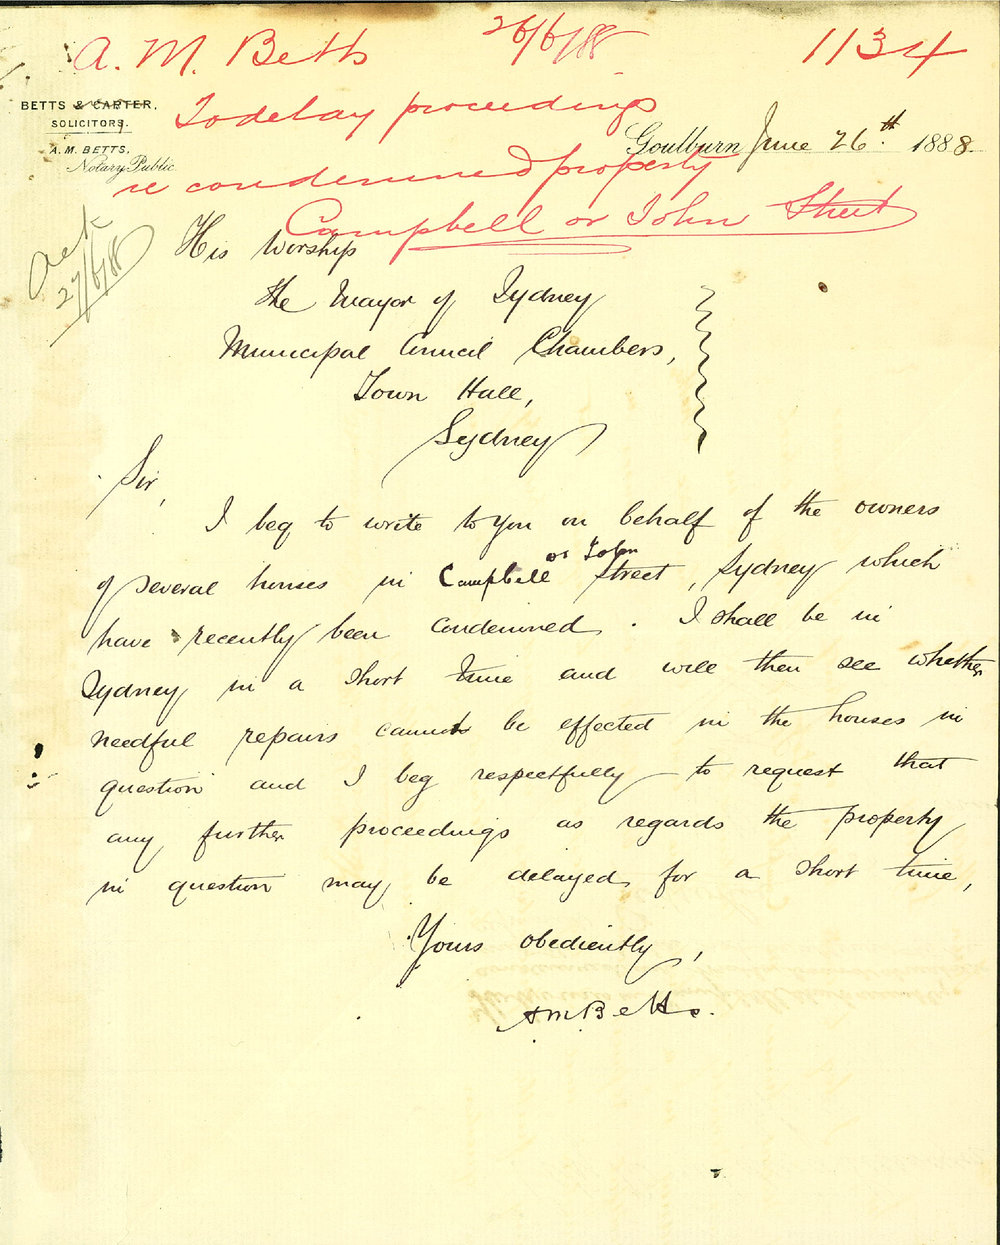 A. M. Betts 26/6/88 1134
To delay proceedings
re condemned property
Campbell or John Street
BETTS & CARTER,
SOLICITORS.
A. M. BETTS,
Notary Public
Goulburn June 26th 1888.
Ack
27/6/88
His Worship
the Mayor of Sydney
Municipal Council Chambers,
Town Hall,
Sydney
Sir,
I beg to write to you on behalf of the owners
of several houses in Campbell or John Street, Sydney which
have recently been condemned. I shall be in
Sydney in a short time and will then see whether
needful repairs cannot be effected in the houses in
question and I beg respectfully to request that
any further proceedings as regards the property
in question may be delayed for a short time,
Yours obediently,
A M Betts.